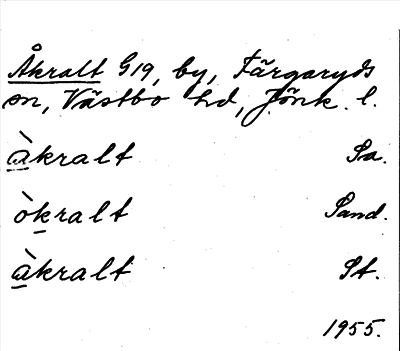 Åkralt G19, by, Färgaryds
sn, Västbo hd, Jönk. l.
àkralt Sa.
òkralt Sand.
àkralt St.
1955.